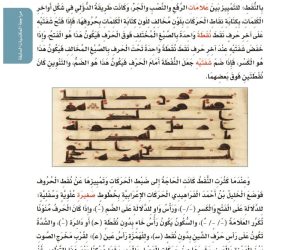 بالنُّقط؛ للتمييز بين علامات الرفع والنصب والجر، وكانت طريقة الدؤلي في شكل أواخر
الكلمات، بكتابة نقاط الحركات بلون مخالف للون كتابة الكلمات بحروفها، فإذا فتح شفتيه
عند آخر حرف نقط نقطة واحدة بالصبغ المختلف فوق الحرف فيكون هذا هو الفتح، وإذا
خفض شفتيه عند آخر حرف نقط نقطة واحدة تحت الحرف بالصبغ المخالف فيكون هذا
هو الكسر، فإذا ضم شفتيه جعل النقطة أمام الحرف فيكون هذا هو الضم، والتنوين كان
نقطتين فوق بعضهما.
وعندما كثرت النقاط كانت الحاجة إلى ضبط الحركات وتمييزها عن نقط الحروف
فوضع الخليل بن أحمد الفراهيدي الحركات الإعرابية بخطوط صغيرة علوية وسفلية،
للدلالة على الفتح والكسر، ورأس واو للدلالة على الضم، وإذا كان الحرف منونًا
تكرر العلامة، والسكون يكون رأس خاء بدون نقطة (حـ) أو دائرة، والشدة
تكون على رأس حرف الشين بدون نقط، والهمزة رأس عين (ء) لقرب مخرج الصوت